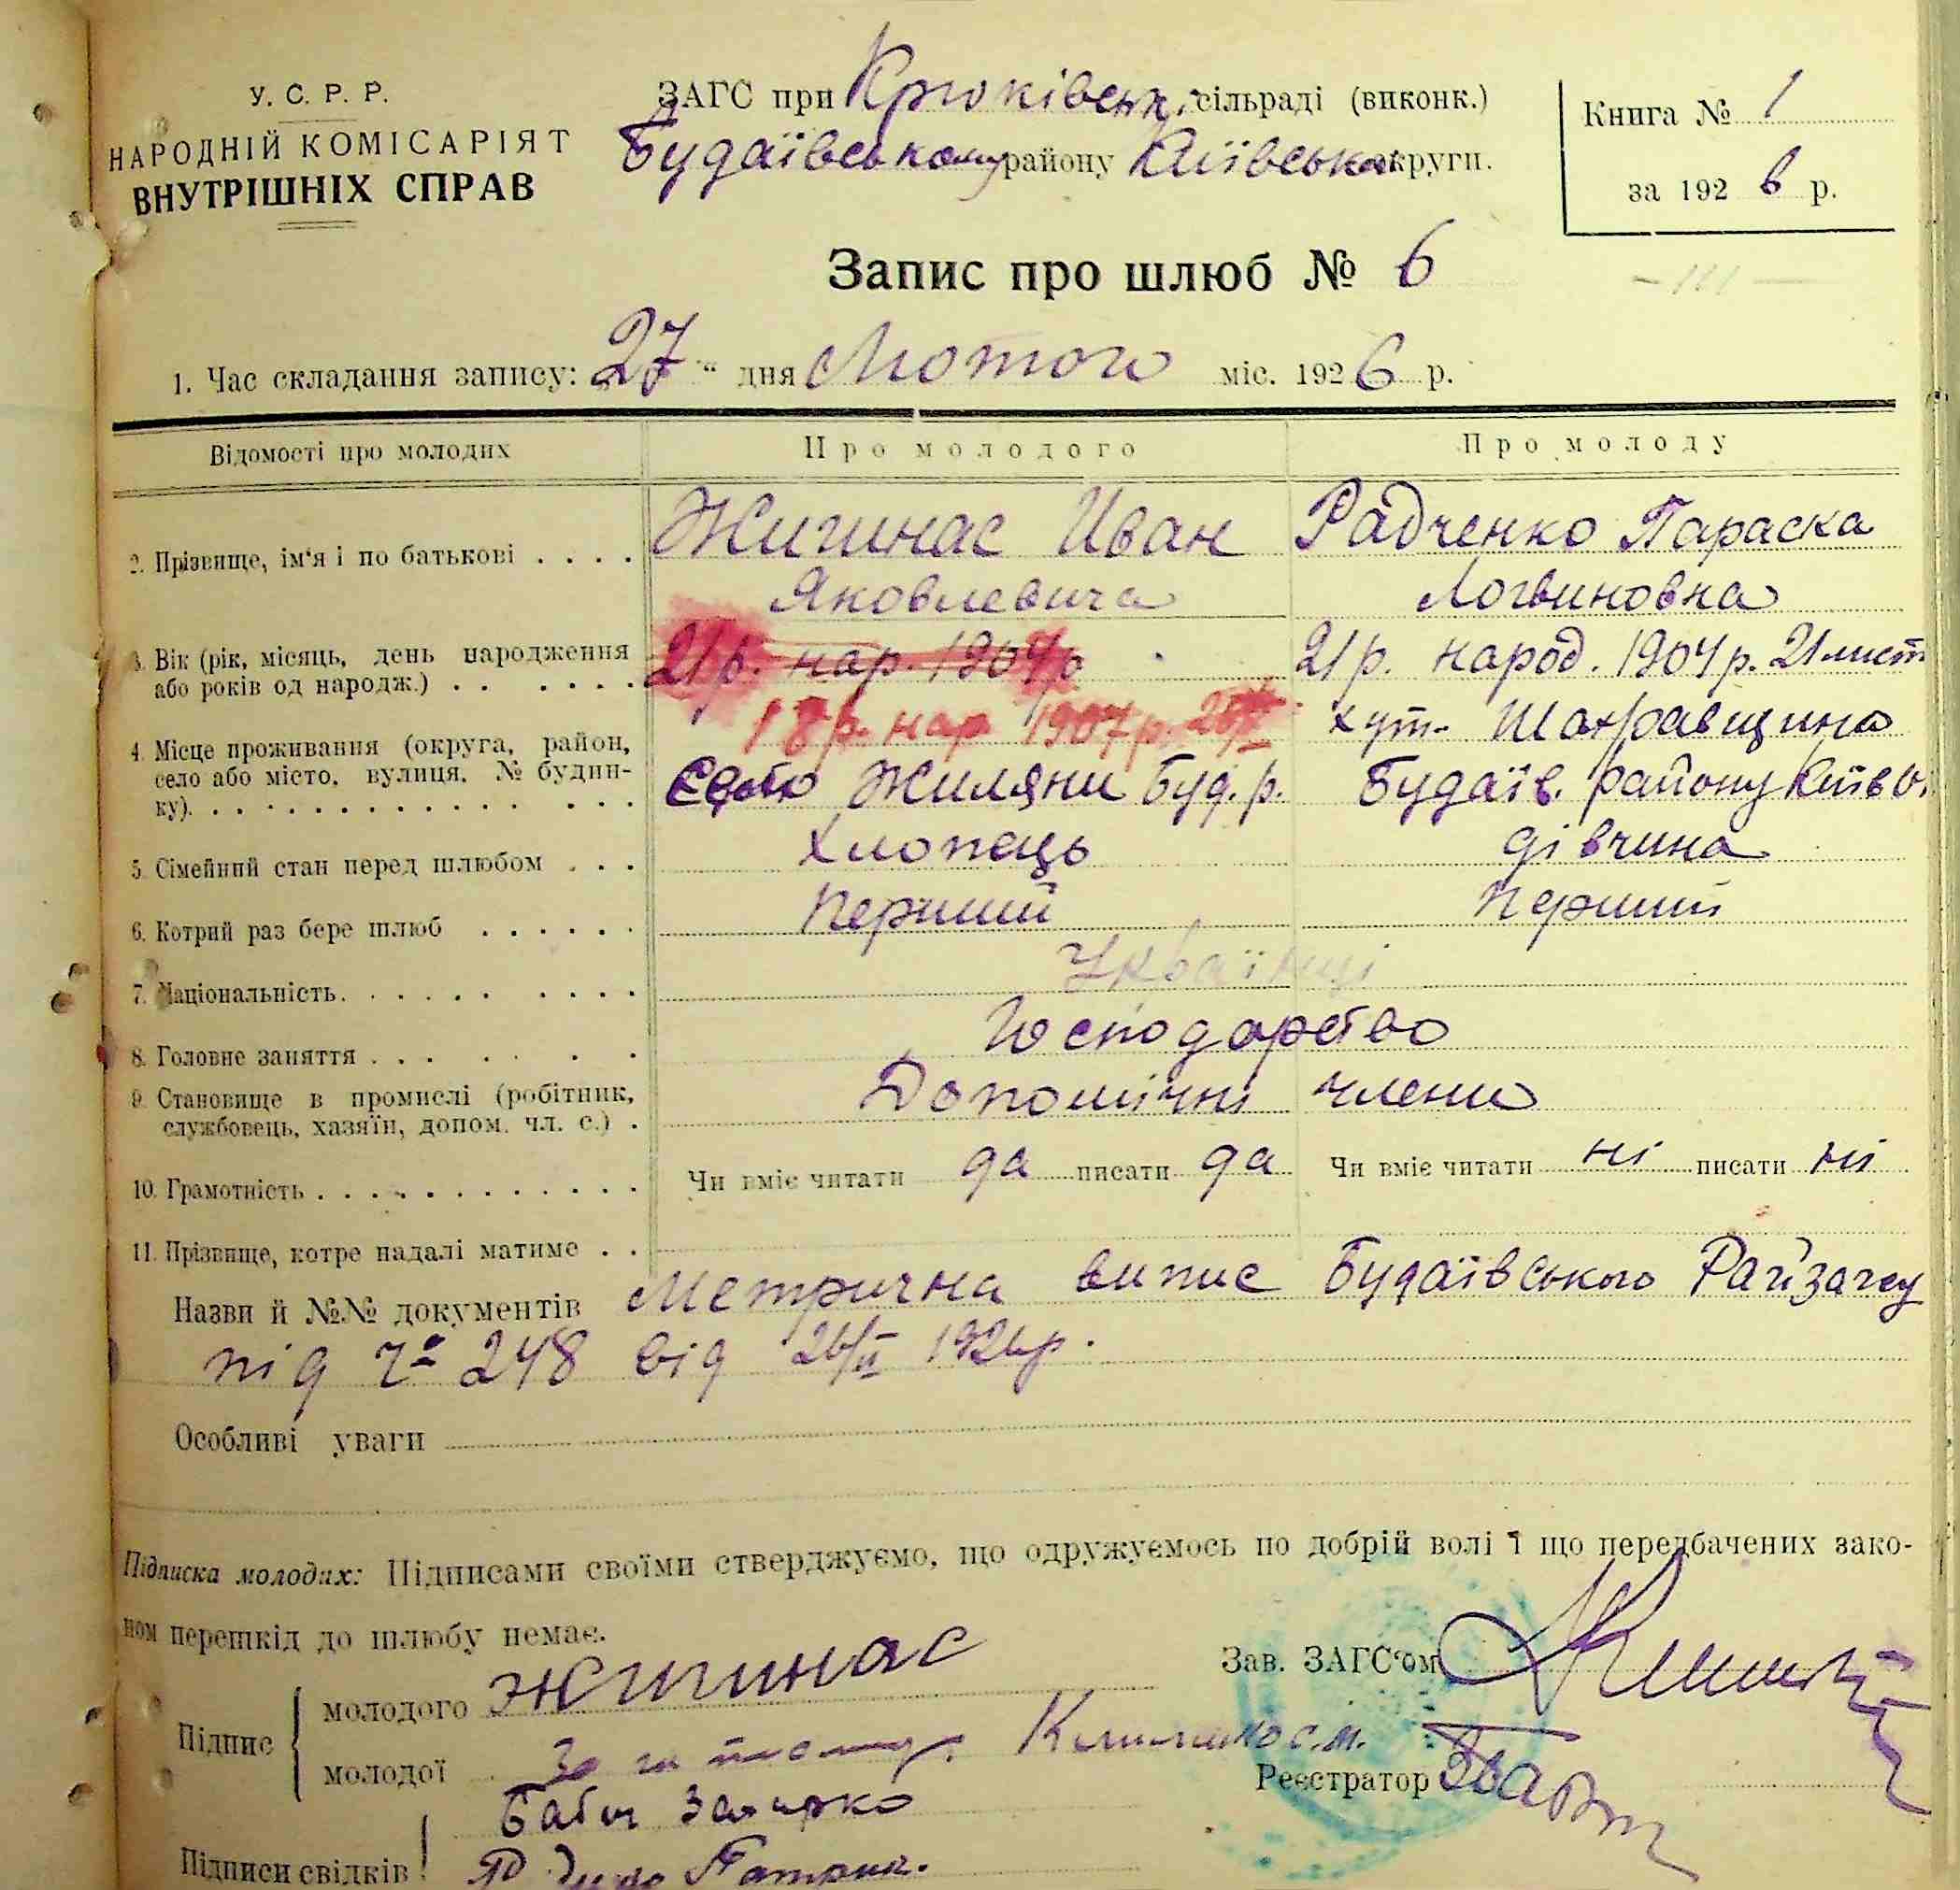 У. С. Р. Р.
НАРОДНІЙ КОМІСАРІЯТ
ВНУТРІШНІХ СПРАВ
ЗАГС при Крюківськ. сільраді (виконк.)
Будаївському району Київська округи.
Книга № 1
за 192 6 р.
Запис про шлюб № 6
1. Час складання запису: „27“ дня Лютого міс. 1926 р.
Відомості про молодих
Про молодого
Про молоду
2. Прізвище, ім'я і по батькові . . . .
Жигинас Иван
Яковлевича
Радченко Параска
Логвиновна
3. Вік (рік, місяць, день народження
або років од народж.) . . . . . .
21р. нар. 1904р
18р. нар 1907р.
21р. народ. 1904р. 21 лист
4. Місце проживання (округа, район,
село або місто, вулиця, № будин-
ку). . . . . . . . . . . . . . .
Жиляни Буд. р.
хут. Шахравщина
Будаїв. району
5. Сімейний стан перед шлюбом . . .
Хлопець
дівчина
6. Котрий раз бере шлюб . . . . . .
Перший
Перший
7. Національність. . . . . . . . . .
Українці
8. Головне заняття . . . . . . .
Господарство
9. Становище в промислі (робітник,
службовець, хазяїн, допом. чл. с.) .
Допомічні члени
10. Грамотність . . . . . . . . . . . .
Чи вміє читати да писати да
Чи вміє читати ні писати ні
11. Прізвище, котре надалі матиме . .
Назви й №№ документів Метрична випис Будаївського Райзагсу
під Ч° 248 від 26/II 1926р.
Особливі уваги
Підписка молодих: Підписами своїми стверджуємо, що одружуємось по добрій волі і що передбачених зако-
ном перешкід до шлюбу немає.
Зав. ЗАГС'ом
Підпис
молодого Жигинас
молодої
Реєстратор
Підписи свідків